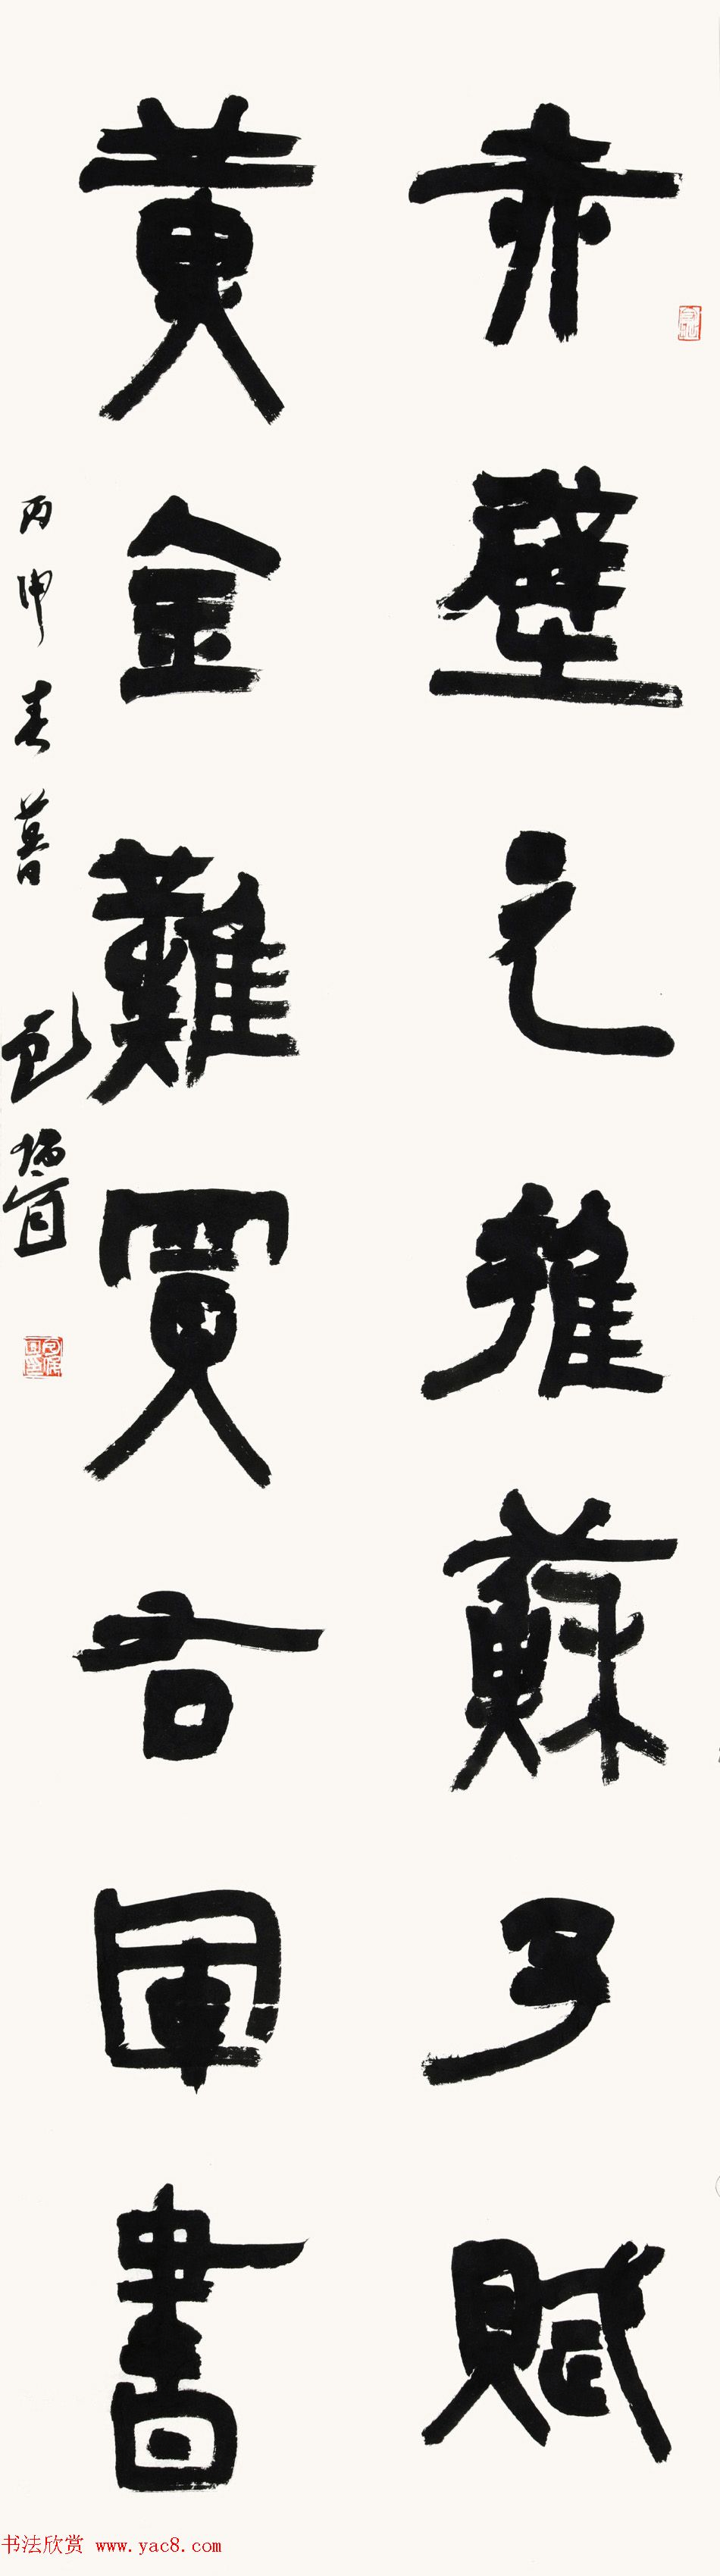 赤壁之雄蘇子賦
黃金難買右軍書
丙申春暮 包俊宜
书法欣赏 www.yac8.com